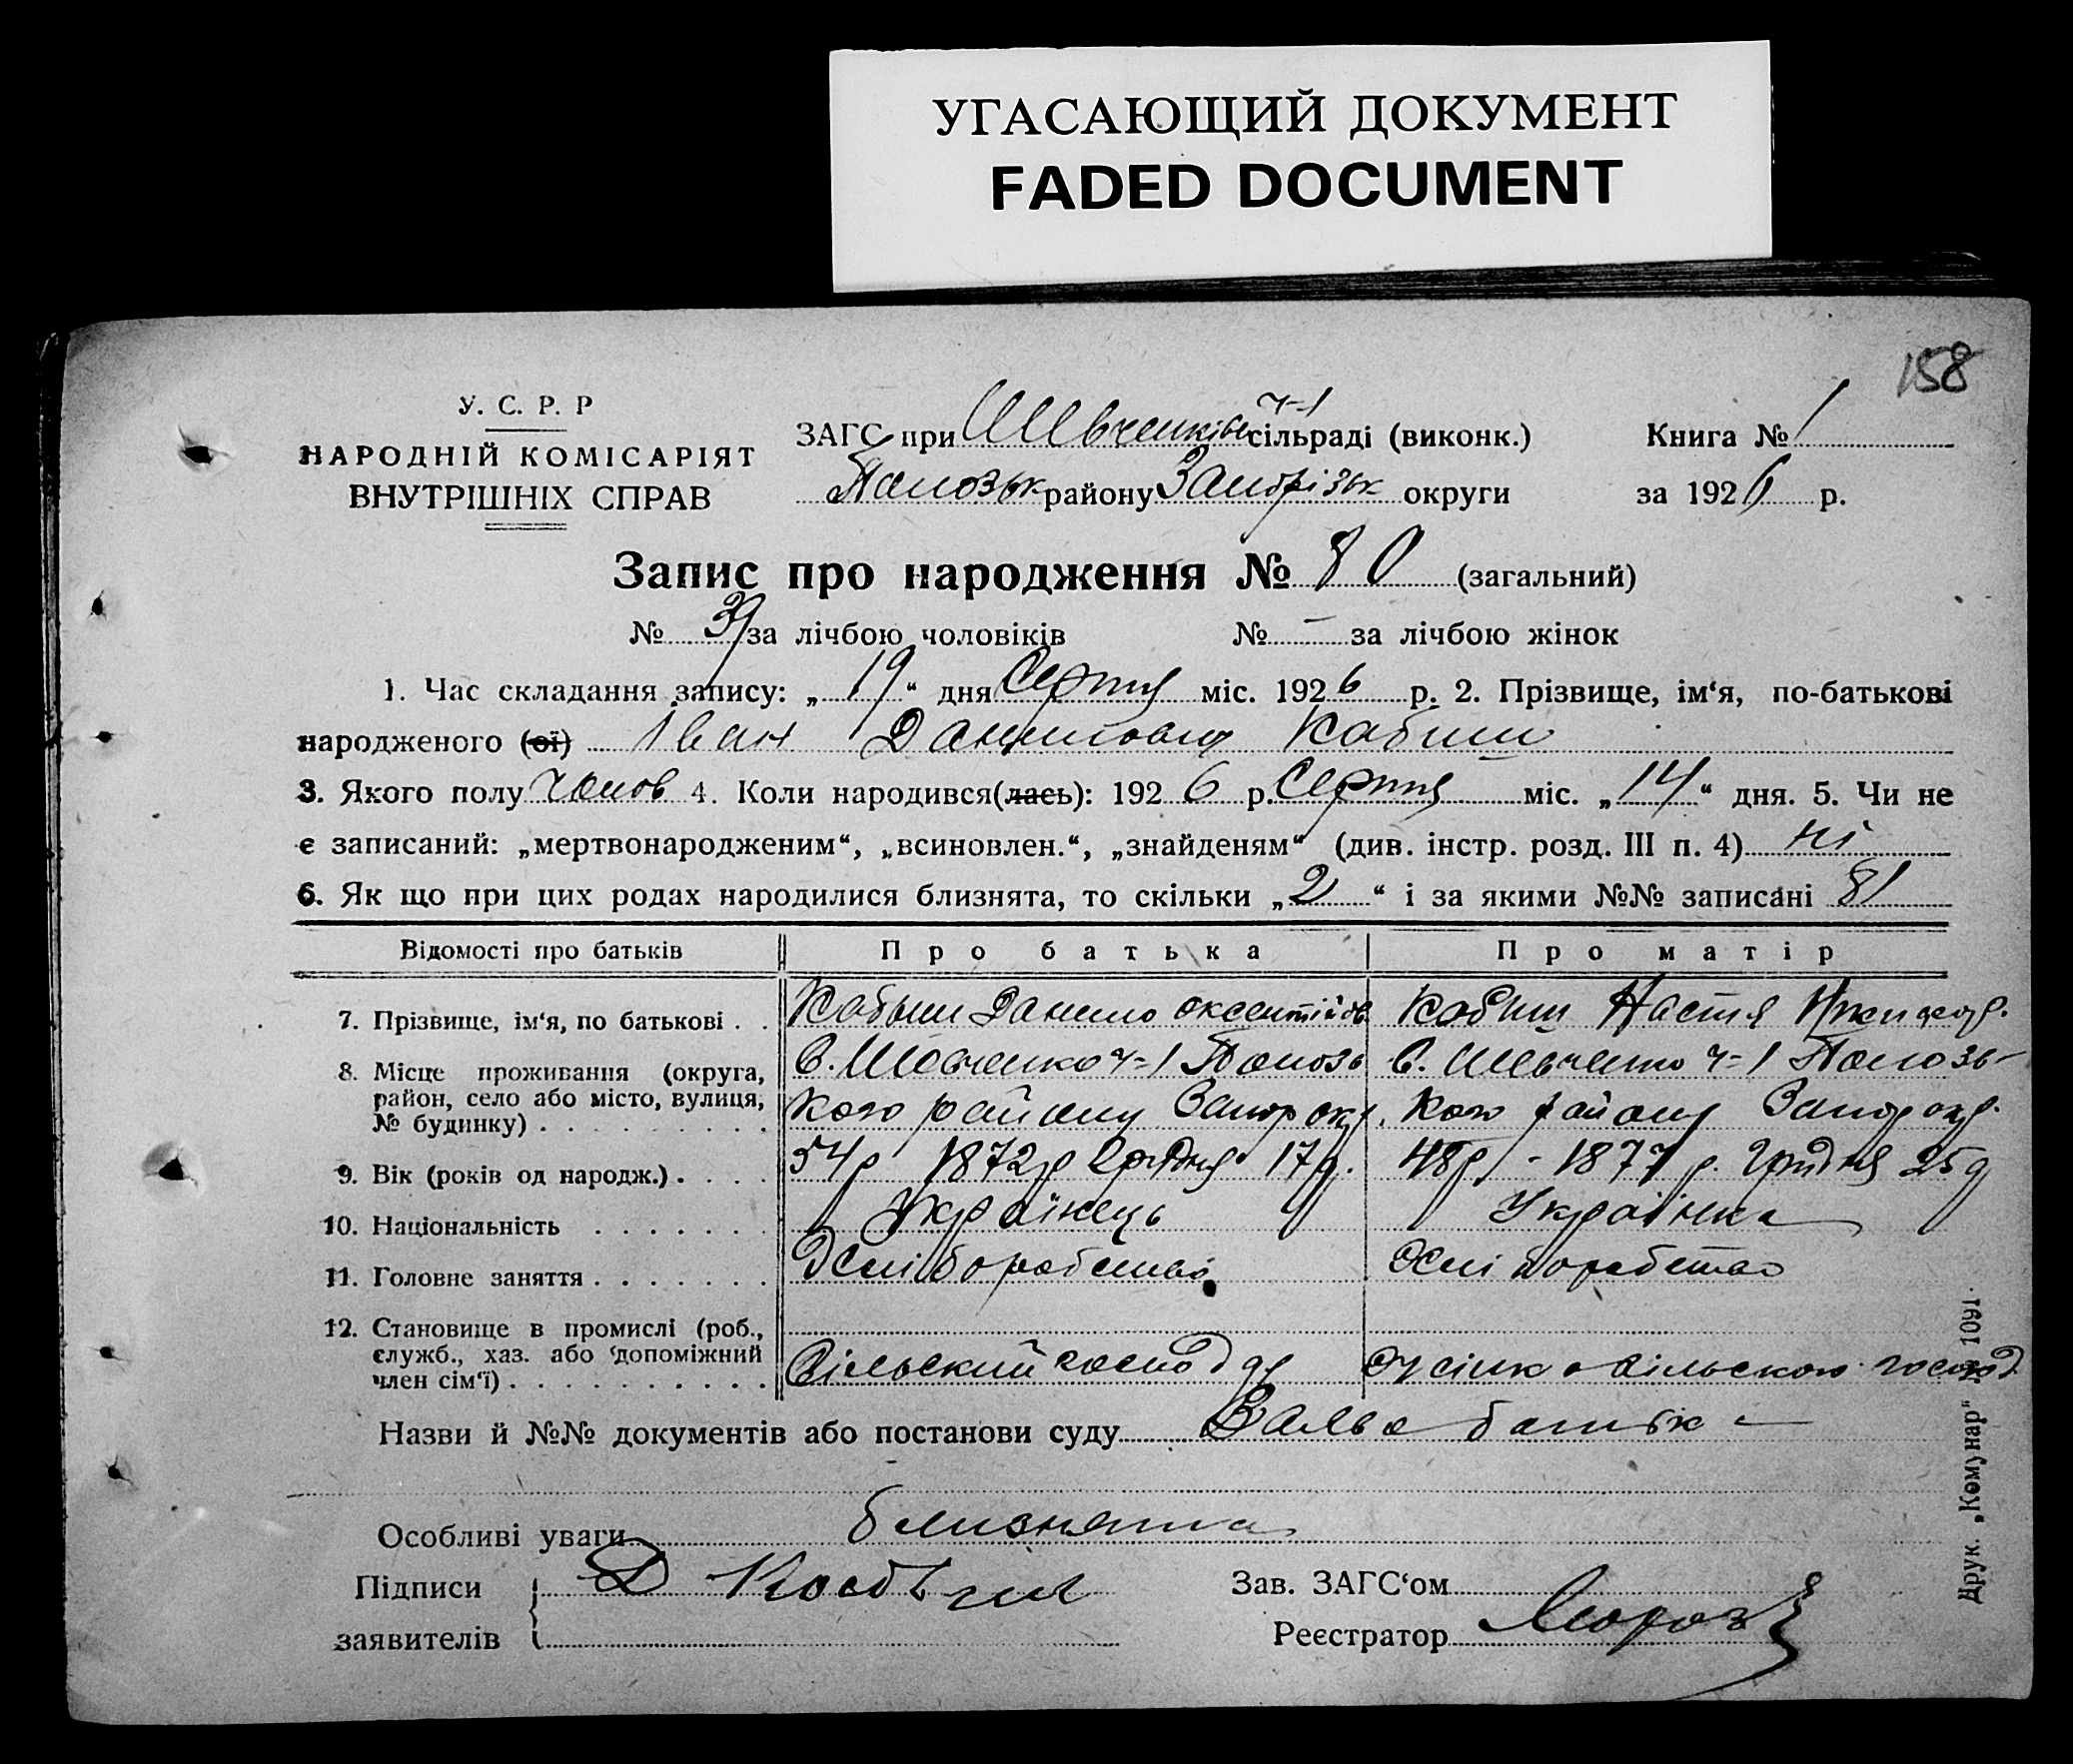 УГАСАЮЩИЙ ДОКУМЕНТ
FADED DOCUMENT
158
У. С. Р. Р
НАРОДНІЙ КОМІСАРІЯТ
ВНУТРІШНІХ СПРАВ
ЗАГС при Шевченківс ч-1 сільраді (виконк.)
Полозьк району Запорізьк округи
Книга № 1
за 1926 р.
Запис про народження № 80 (загальний)
№ 39 за лічбою чоловіків № – за лічбою жінок
1. Час складання запису: „19“ дня Серпня міс. 1926 р. 2. Прізвище, ім‘я, по-батькові
народженого (ої) Іван Данилович Кабиш
3. Якого полу чолов 4. Коли народився(лась): 1926 р. Серпня міс. „14“ дня. 5. Чи не
є записаний: „мертвонародженим“, „всиновлен.“, „знайденям“ (див. інстр. розд. III п. 4) ні
6. Як що при цих родах народилися близнята, то скільки „2“ і за якими №№ записані 81
Відомості про батьків Про батька Про матір
7. Прізвище, ім‘я, по батькові . . Кабыш Данило Оксентійов. Кабиш Настя
8. Місце проживання (округа, район, село або місто, вулиця, № будинку) . . . . . . . . .
С. Шевченко ч-1 Полозь С. Шевченко ч-1 Полозь-
кого району Запор окр. кого району Запор окр.
9. Вік (років од народж.) . . . . 54р 1872р Грудня 17д. 48р - 1877 р. Грудня 25д
10. Національність . . . . . . . Українець Українка
11. Головне заняття . . . . . . . Хліборобство Хліборобство
12. Становище в промислі (роб., служб., хаз. або допоміжний член сім‘ї) . . . . . . . . . .
Сільский господар сільского господ
Назви й №№ документів або постанови суду Заява батька
Особливі уваги близнята
Підписи
заявителів
Д Кабыш
Зав. ЗАГС‘ом
Реєстратор Мороз
Друк. „Комунар“ 1091.